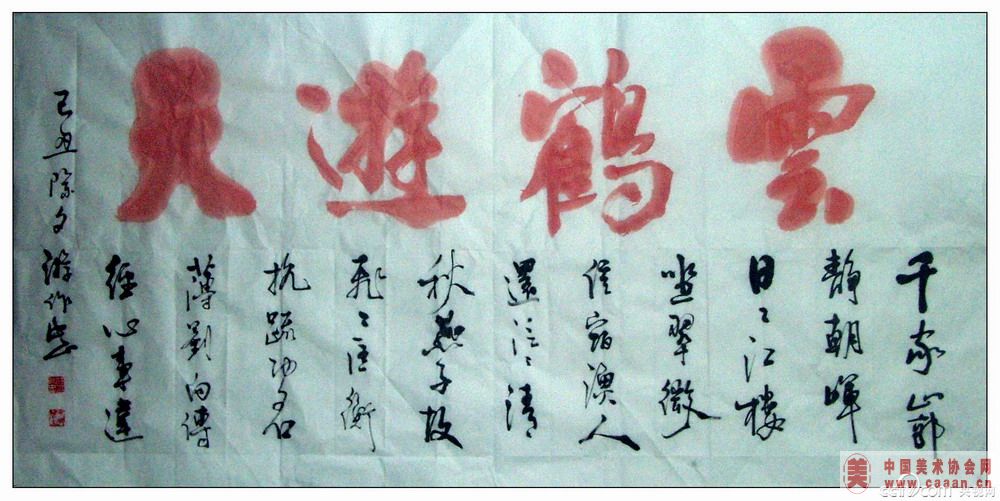 雲鶴遊
千家山郭
靜朝暉
日〻江樓
坐翠微
信宿漁人
還泛〻清
秋燕子故
飛〻匡衡
抗疏功名
薄劉向傳
經心事違
己丑除夕 游作
美 中国美术协会网
www.caaan.cn
cctv.com 央视网